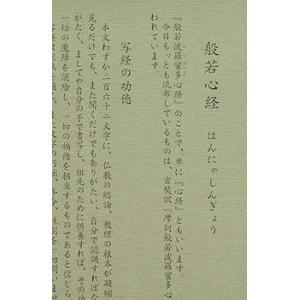 般若心経 はんにゃしんぎょう
『般若波羅蜜多心経』のことで、単に『心経』ともいいます。
今日もっとも流布しているものは、玄奘訳『摩訶般若波羅蜜多心
われています。
写経の功徳
本文わずか二百六十二文字に、仏教の総論、教理の根本が凝縮
見るだけでも、また聞くだけでもありがたい、自分で読誦すればな
がたく、ましてや自分の手で書写し、祖先のために供養すれば、その功
一切の魔障を消除し、一切の福徳を招来するものであると信じら